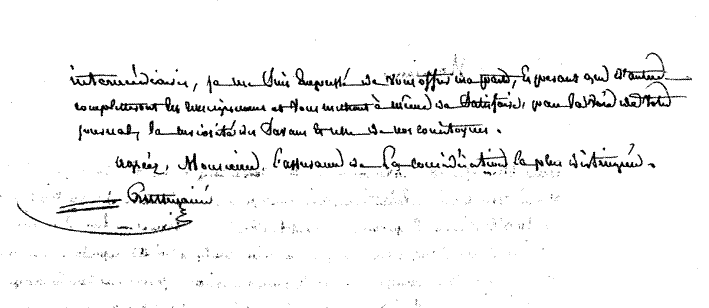 intermédiaire, je me suis empressé de vous offrir ma part, espérant que d'autres
completteront les renseignemens et vous mettront à même de satisfaire, par la voie de votre
journal, la curiosité des savans et celle de nos concitoyens.
Agréez, Monsieur, l'assurance de la considération la plus distinguée.